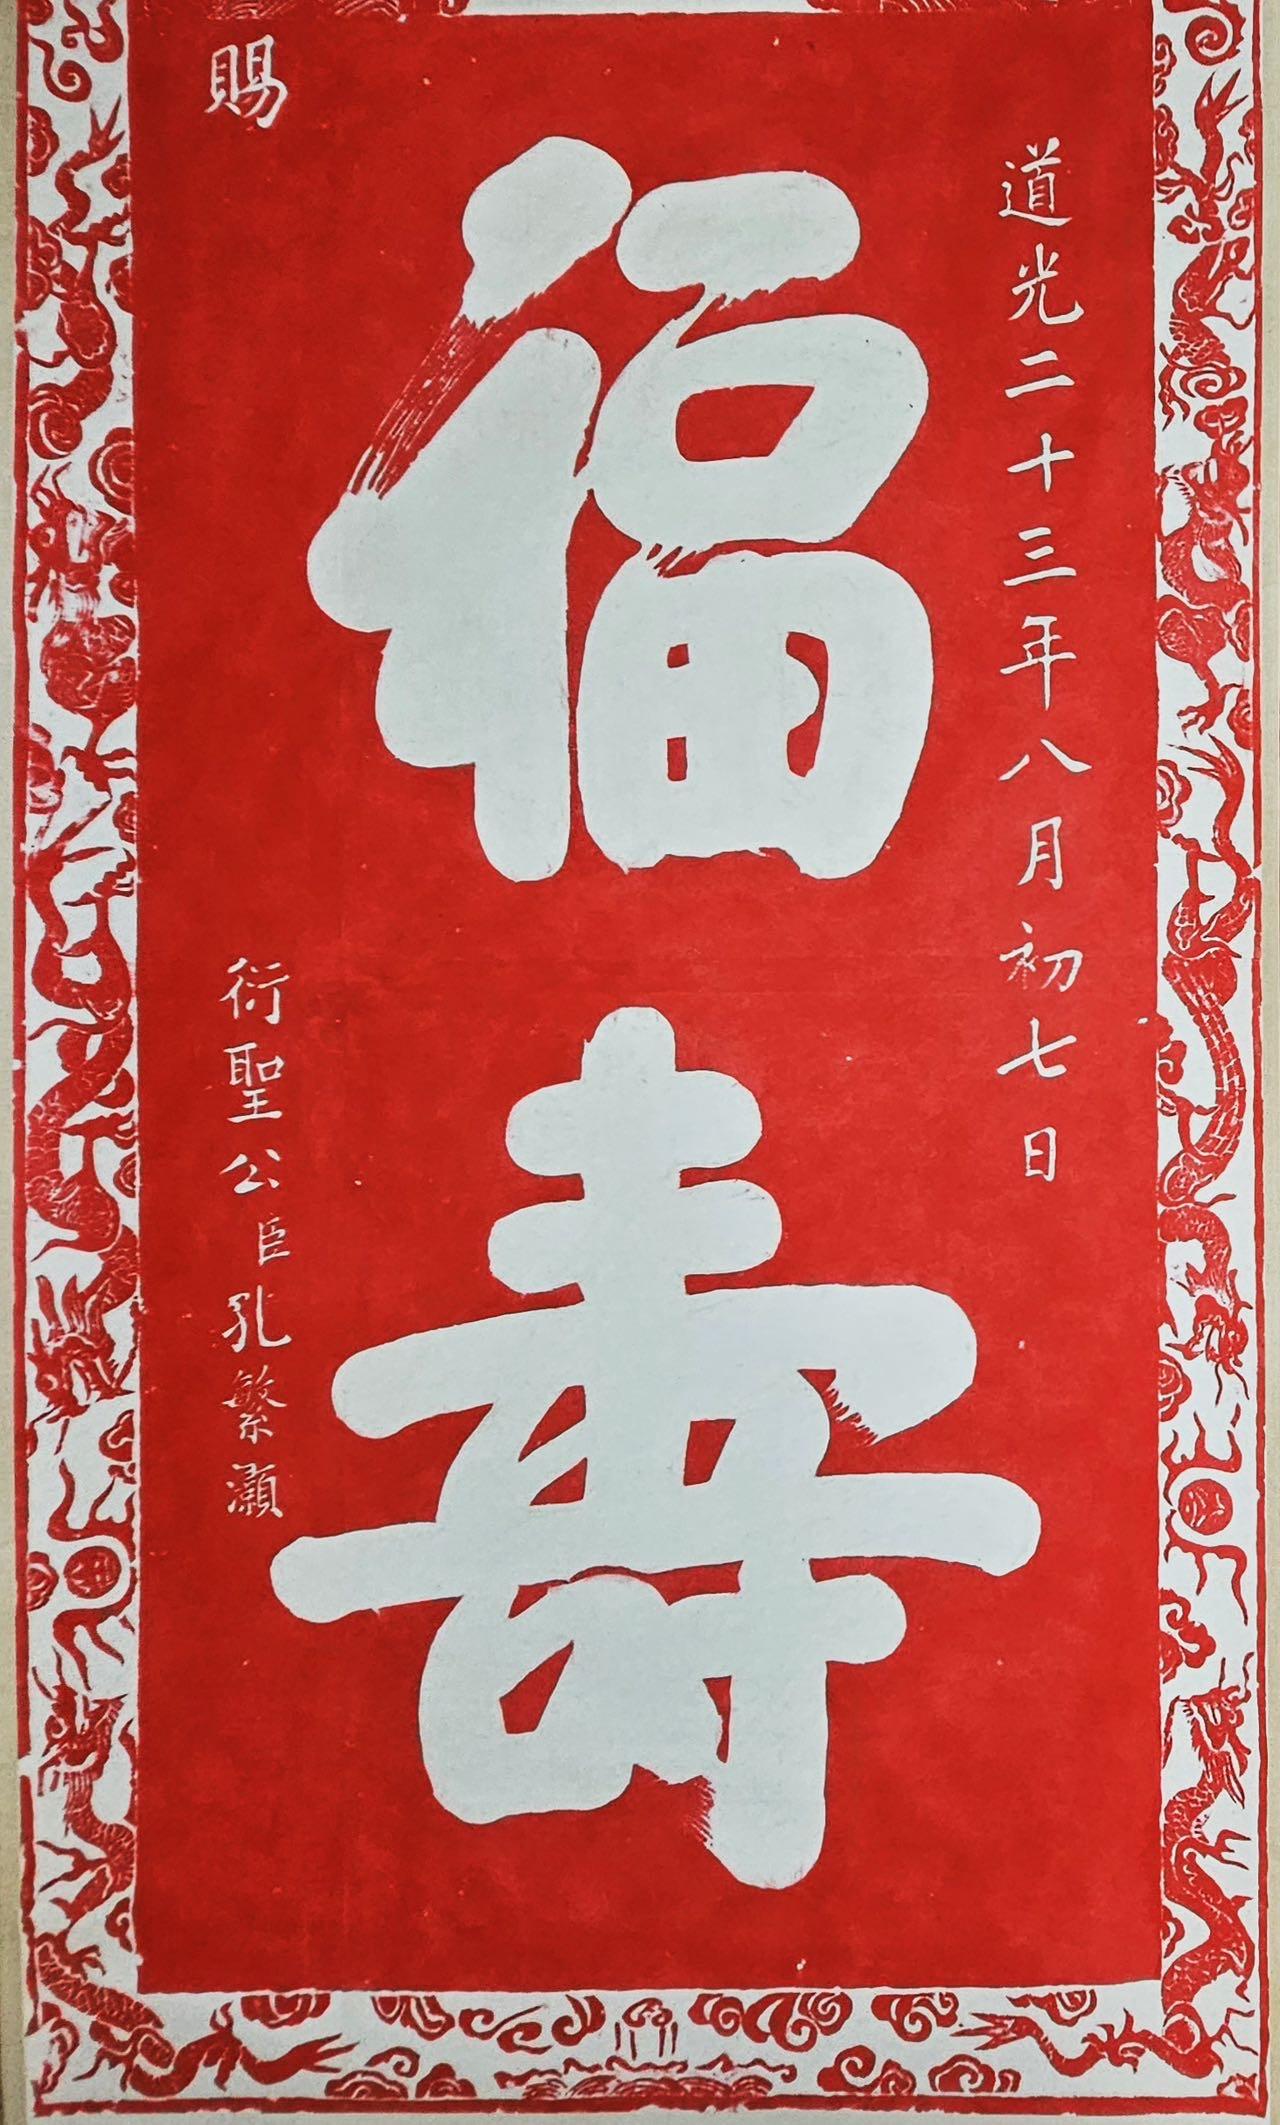 道光二十三年八月初七日
福壽
賜
衍聖公臣孔繁灝